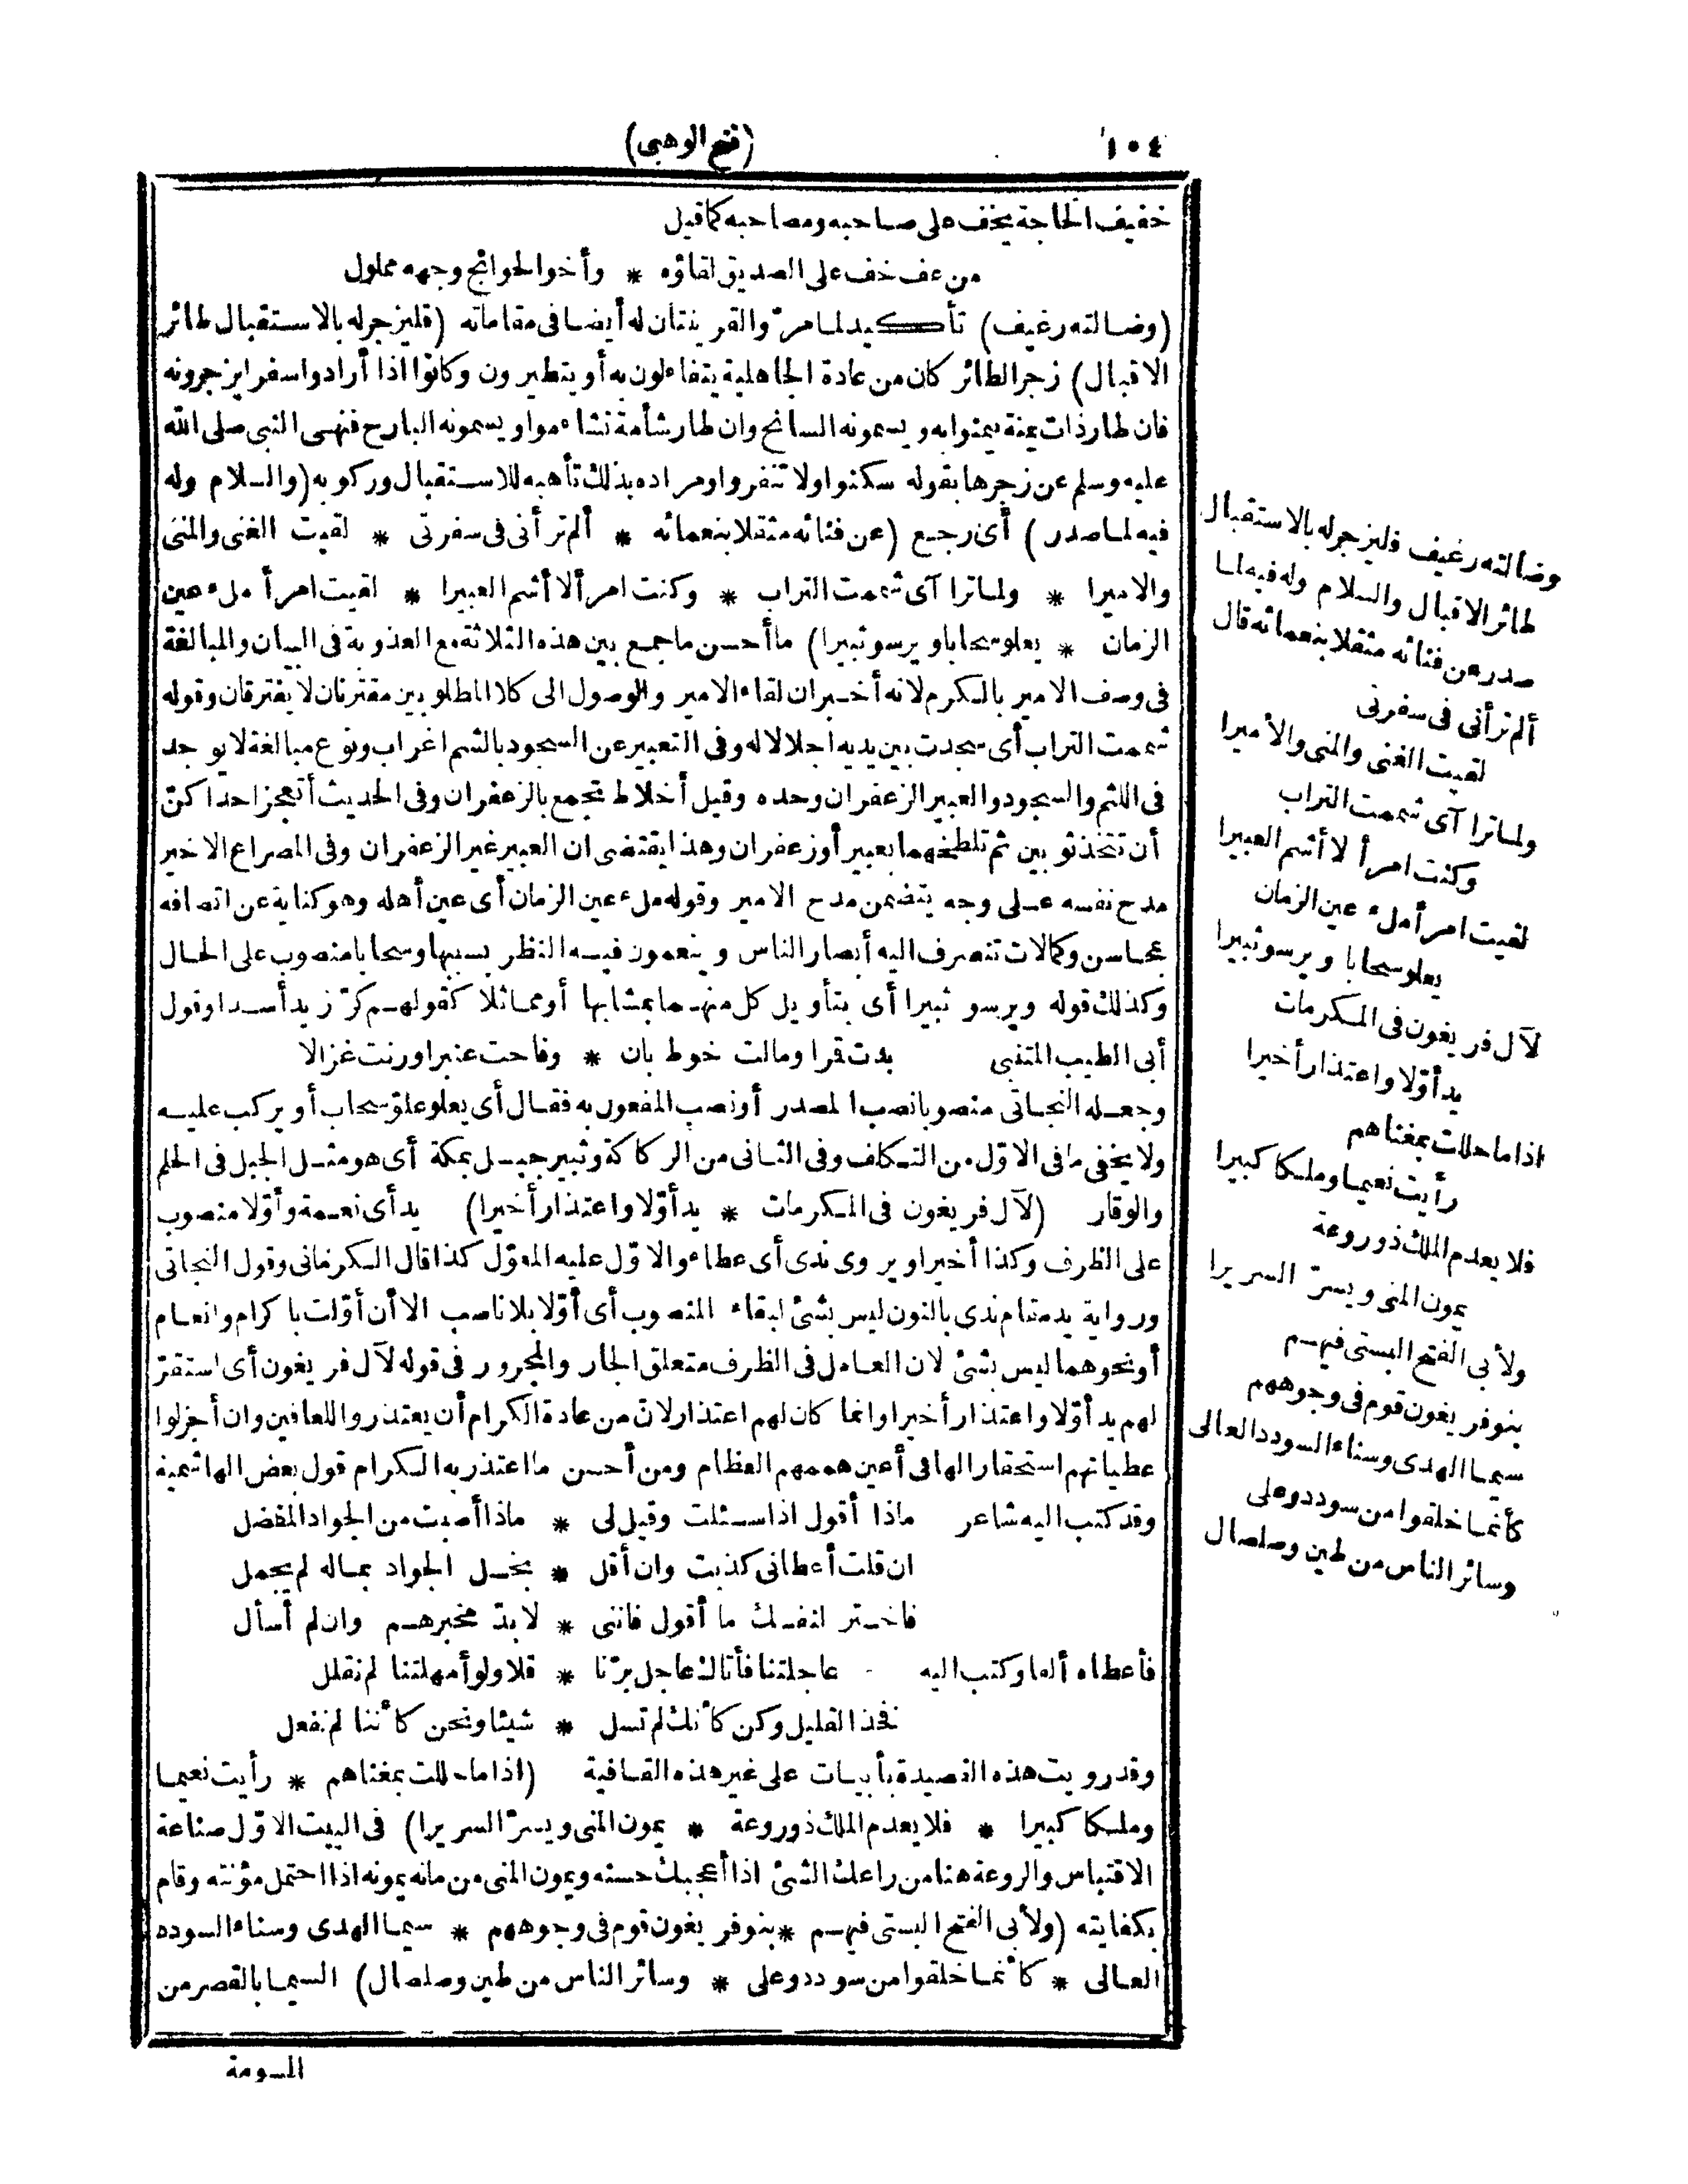 ١٠٤
(فتح الوهبى)
خفيف الحاجة يخف على صاحبه ومصاحبه كما قيل
من عف خف على الصديق لقاؤه * وأخو الحوائج وجهه مملول
(وضالته رغيف) تأكيد لما مرّ والقرينتان له أيضا فى مقاماته (فليزجر له بالاستقبال طائر
الاقبال) زجر الطائر كان من عادة الجاهلية يتفاءلون به أو يتطيرون وكانوا اذا أرادوا سفرا يزجرونه
فان طار ذات يمنة يمنوا به ويسمونه السانح وان طار شأمة تشاءموا ويسمونه البارح فنهى النبى صلى الله
عليه وسلم عن زجرها بقوله سكنوا ولا تنفروا ومراده بذلك تأهبه للاستقبال وركوبه (والسلام وله
فيه لما صدر) أى رجع (عن فنائه مثقلا بنعمائه * ألم تر أنى فى سفرتى * لقيت الغنى والمنى
والاميرا * ولما تراآى شممت التراب * وكنت امرأ لا أشم العبيرا * لقيت امرأ ملء عين
الزمان * يعلو سحابا ويرسو ثبيرا) ما أحسن ما جمع بين هذه الثلاثة مع العذوبة فى البيان والمبالغة
فى وصف الامير بالكرم لانه أخبر ان لقاء الامير والوصول الى كلا المطلوبين مقترنان لا يفترقان وقوله
شممت التراب أى سجدت بين يديه اجلالا له وفى التعبير عن السجود بالشم اغراب ونوع مبالغة لا يوجد
فى اللثم والسجود والعبير الزعفران وحده وقيل أخلاط تجمع بالزعفران وفى الحديث أتعجز احداكنّ
أن تتخذ ثوبين ثم تلطخهما بعبير أو زعفران وهذا يقتضى ان العبير غير الزعفران وفى المصراع الاخير
مدح نفسه على وجه يتضمن مدح الامير وقوله ملء عين الزمان أى عين أهله وهو كناية عن اتصافه
بمحاسن وكمالات تنصرف اليه أبصار الناس وينعمون فيه النظر بسببها وسحابا منصوب على الحال
وكذلك قوله ويرسو ثبيرا أى بتأويل كل منهما بمشابها أو مماثلا كقولهم كرّ زيد أسدا وقول
أبى الطيب المتنبى بدت قرا ومالت خوط بان * وفاحت عنبرا ورنت غزالا
وجعله النجاتى منصوبا نصب المصدر أو نصب المفعول به فقال أى يعلو علوّ سحاب أو يركب عليه
ولا يخفى ما فى الاوّل من التكلف وفى الثانى من الركاكة وثبير جبيل بمكة أى هو مثل الجبل فى الحلم
والوقار (لآل فريغون فى المكرمات * يد أوّلا واعتذار أخيرا) يد أى نعمة وأوّلا منصوب
على الظرف وكذا أخيرا ويروى ندى أى عطاء والاوّل عليه المعوّل كذا قال الكرمانى وقول النجاتى
ورواية يد مقام ندى بالنون ليس بشئ لبقاء المنصوب أى أوّلا بلا ناصب الا أن أوّلت باكرام وانعام
أو نحوهما ليس بشئ لان العامل فى الظرف متعلق الجار والمجرور فى قوله لآل فريغون أى استقرّ
لهم يد أوّلا واعتذار أخيرا وانما كان لهم اعتذار لانّ من عادة الكرام أن يعتذروا للعافين وان أجزلوا
عطياتهم استحقارا لها فى أعين هممهم العظام ومن أحسن ما اعتذر به الكرام قول بعض الهاشمية
وقد كتب اليه شاعر ماذا أقول اذا سئلت وقيل لى * ماذا أصبت من الجواد المفضل
ان قلت أعطانى كذبت وان أقل * بخل الجواد بماله لم يجمل
فاختر لنفسك ما أقول فاننى * لا بدّ مخبرهم وان لم أسأل
فأعطاه ألفا وكتب اليه عاجلتنا فأتاك عاجل برّنا * قلا ولو أمهلتنا لم نقلل
فخذ القليل وكن كأنك لم تسل * شيئا ونحن كأننا لم نفعل
وقد رويت هذه القصيدة بأبيات على غير هذه القافية (اذا ما حللت بمغناهم * رأيت نعيما
وملكا كبيرا * فلا يعدم الملك ذو روعة * يمون المنى ويسرّ السريرا) فى البيت الاوّل صناعة
الاقتباس والروعة هنا من راعك الشئ اذا أعجبك حسنه ويمون المنى من مانه يمونه اذا احتمل مؤنته وقام
بكفايته (ولأبى الفتح البستى فيهم * بنو فريغون قوم فى وجوههم * سيما الهدى وسناء السودد
العالى * كأنما خلقوا من سودد وعلى * وسائر الناس من طين وصلصال) السيما بالقصر من
السومة
وضالته رغيف فليزجر له بالاستقبال
طائر الاقبال والسلام وله فيه لما
صدر عن فنائه مثقلا بنعمائه قال
ألم تر أنى فى سفرتى
لقيت الغنى والمنى والأميرا
ولما تراآى شممت التراب
وكنت امرأ لا أشم العبيرا
لقيت امرأ ملء عين الزمان
يعلو سحابا ويرسو ثبيرا
لآل فريغون فى المكرمات
يد أوّلا واعتذار أخيرا
اذا ما حللت بمغناهم
رأيت نعيما وملكا كبيرا
فلا يعدم الملك ذو روعة
يمون المنى ويسرّ السريرا
ولأبى الفتح البستى فيهم
بنو فريغون قوم فى وجوههم
سيما الهدى وسناء السودد العالى
كأنما خلقوا من سودد وعلى
وسائر الناس من طين وصلصال